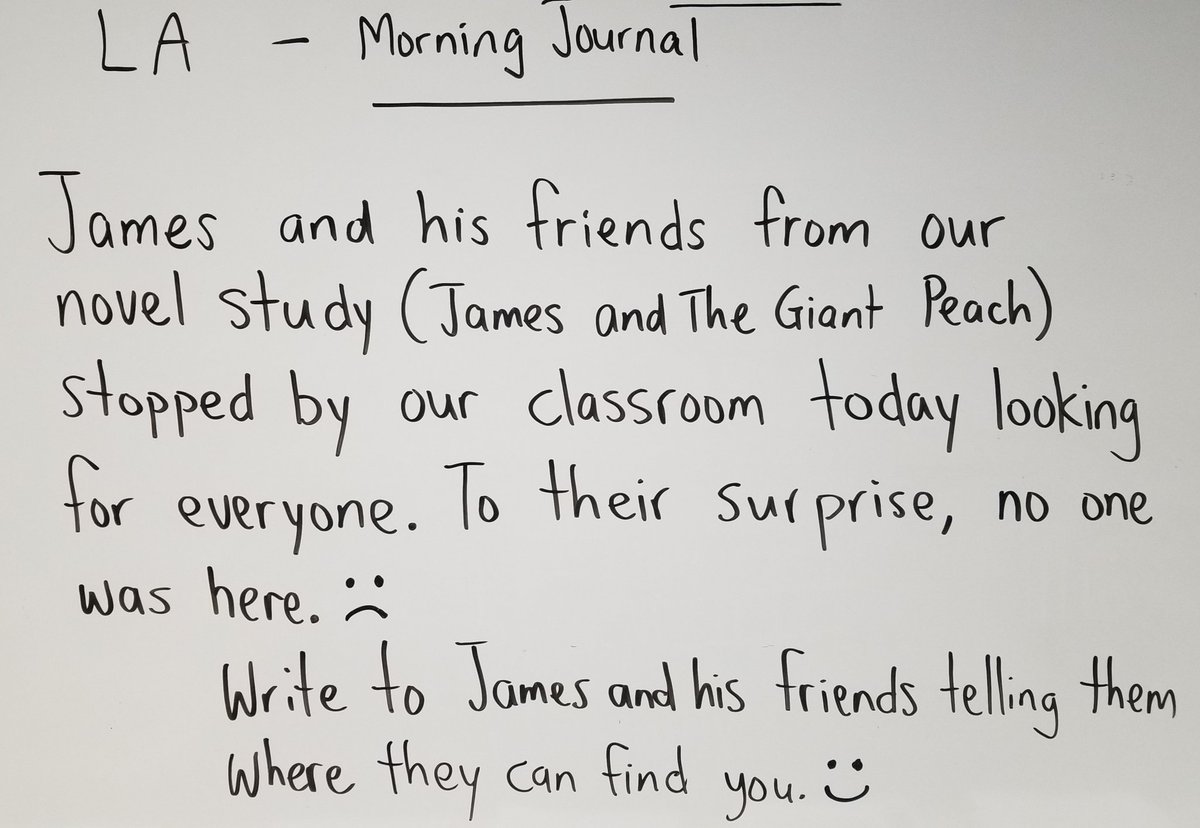 LA - Morning Journal
James and his friends from our
novel study (James and The Giant Peach)
stopped by our classroom today looking
for everyone. To their surprise, no one
was here. :(
Write to James and his friends telling them
where they can find you. :)